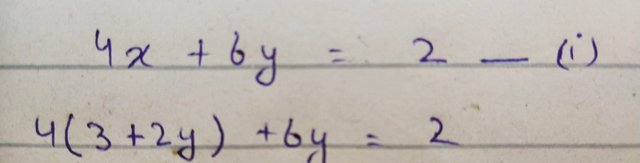 4x + 6y = 2 — (i)
4(3+2y) + 6y = 2